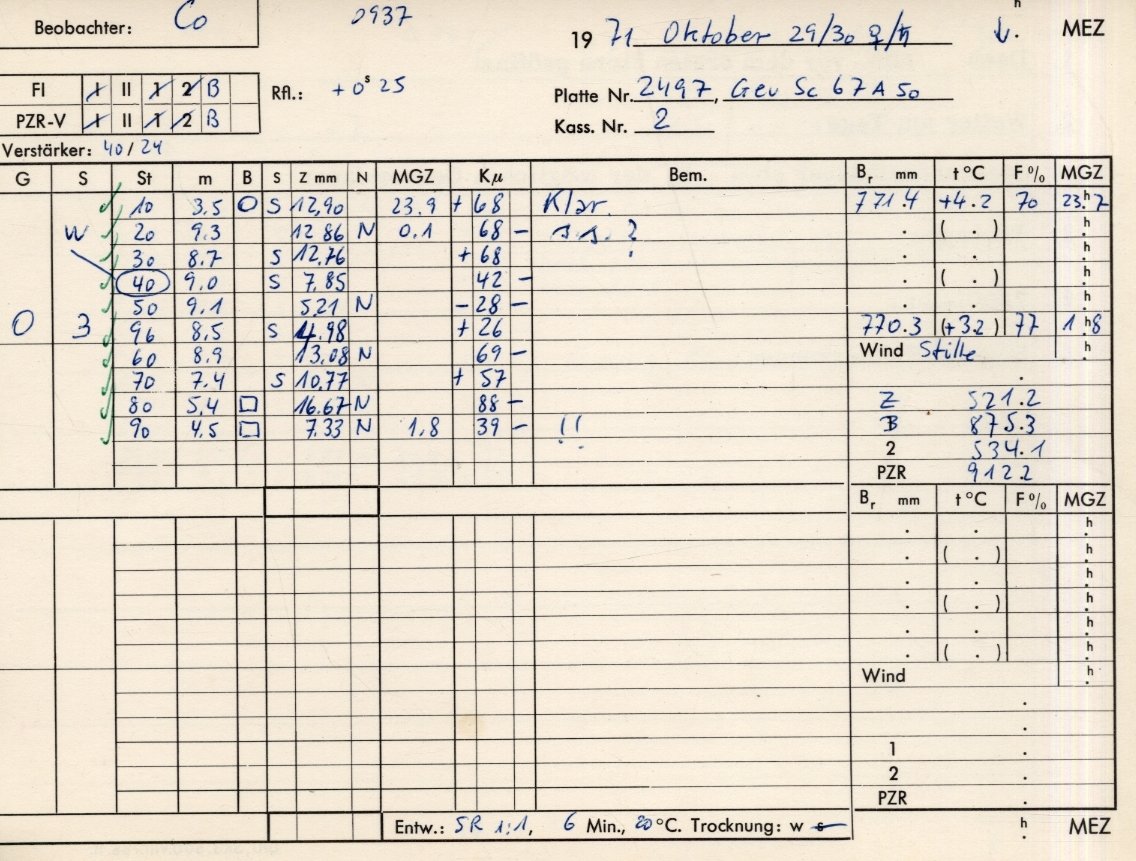 Beobachter: Co 0937 19 71 Oktober 29/30 ♀/♄ ↓. h MEZ
FI I II 1 2 B Rfl.: +0ˢ25 Platte Nr. 2497, Gev Sc 67 A 50
PZR-V I II 1 2 B Kass. Nr. 2
Verstärker: 40/24
G S St m B S Z mm N MGZ Kμ Bem. Br mm t°C F% MGZ
10 3.5 O S 12,90 23.9 + 68 Klar. 771.4 +4.2 70 23.h7
W 20 9.3 12 86 N 0.1 68 – s.s. ? . ( . ) h
30 8.7 S 12,76 + 68 . . h
40 9.0 S 7.85 42 – . ( . ) h
50 9.1 5.21 N – 28 – . . h
O 3 96 8,5 S 4.98 + 26 770.3 (+3.2) 77 1.h8
60 8.9 13,08 N 69 – Wind Stille h
70 7.4 S 10,77 + 57 .
80 5,4 □ 16.67 N 88 – Z 521.2
90 4.5 □ 7.33 N 1.8 39 – !! B 875.3
2 534.1
PZR 912.2
Br mm t°C F% MGZ
. . h
. ( . ) h
. . h
. ( . ) h
. . h
. ( . ) h
Wind h
.
.
1 .
2 .
PZR .
Entw.: SR 1:1, 6 Min., 20°C. Trocknung: w s h MEZ